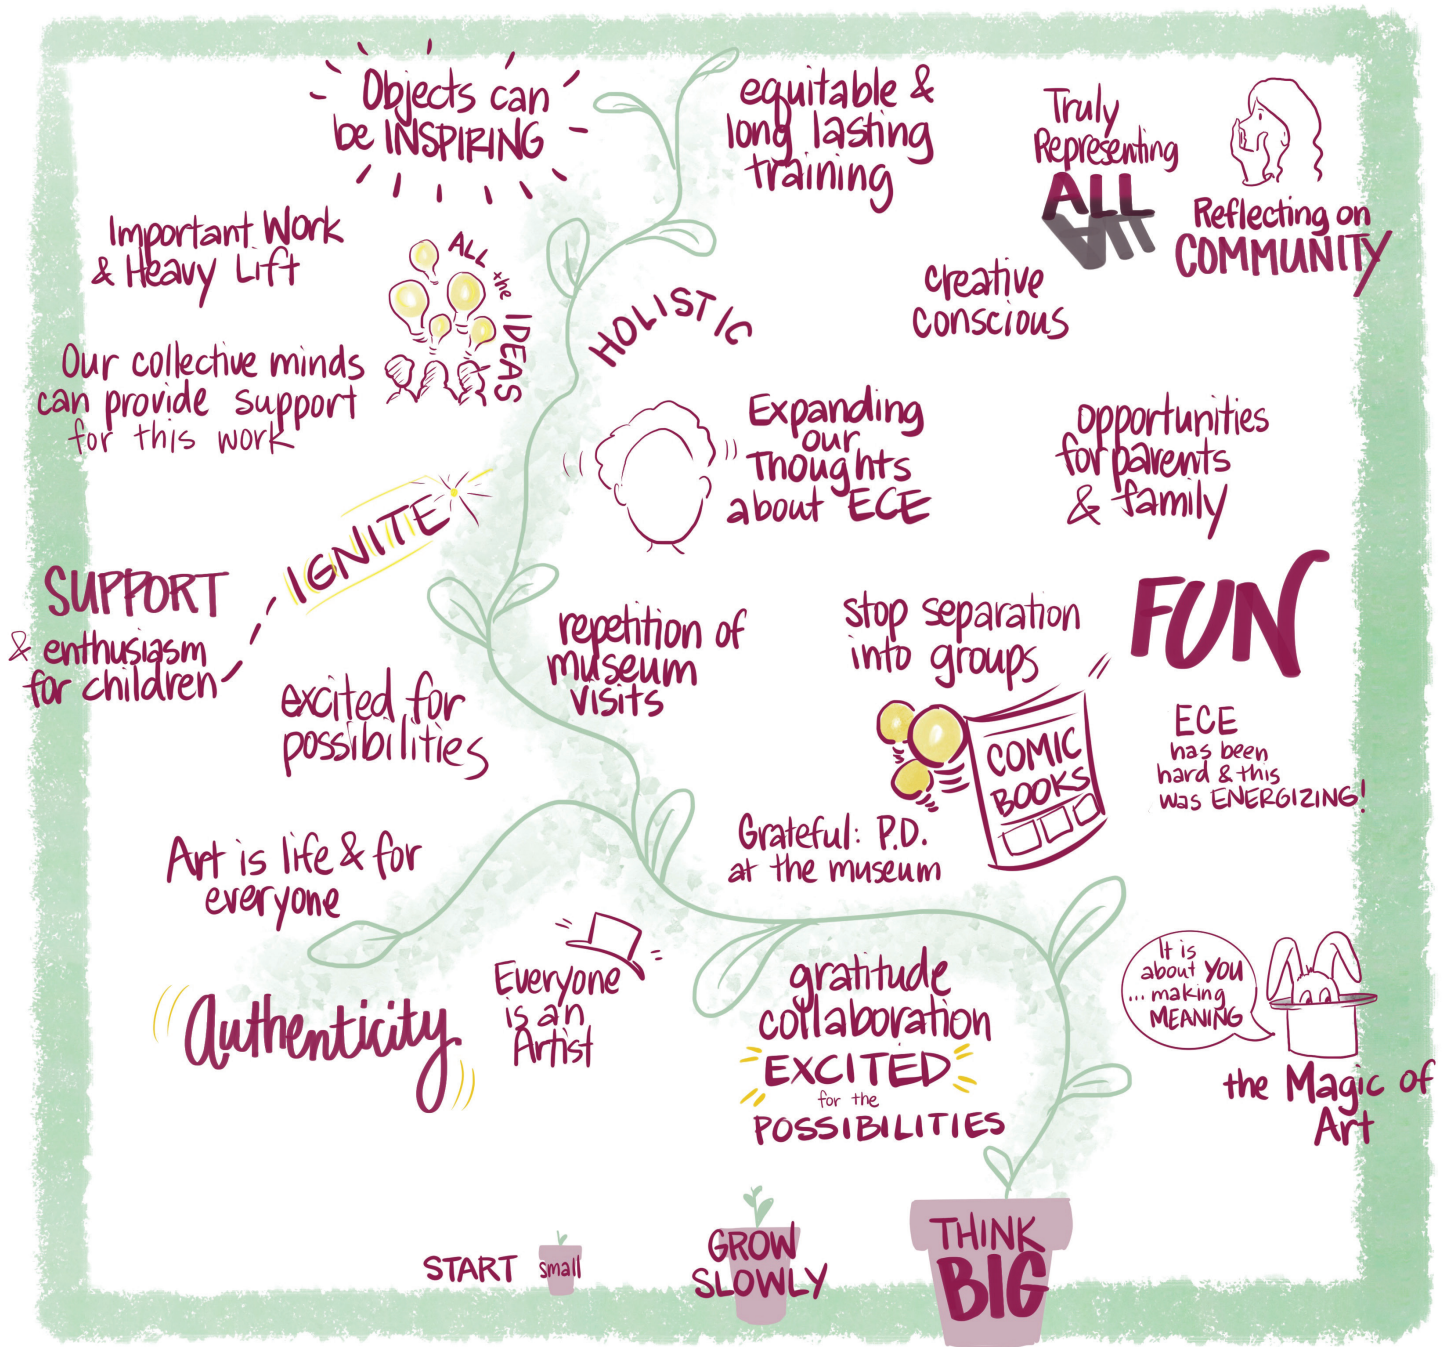 Objects can
be INSPIRING
equitable &
long lasting
training
Truly
Representing
ALL
ALL
Reflecting on
COMMUNITY
Important Work
& Heavy Lift
ALL the IDEAS
HOLISTIC
creative
conscious
Our collective minds
can provide support
for this work
Expanding
our
Thoughts
about ECE
opportunities
for parents
& family
IGNITE
SUPPORT
& enthusiasm
for children
excited for
possibilities
repetition of
museum
visits
stop separation
into groups
FUN
COMIC
BOOKS
ECE
has been
hard & this
was ENERGIZING!
Grateful: P.D.
at the museum
Art is life & for
everyone
Authenticity
Everyone
is an
Artist
gratitude
collaboration
EXCITED
for the
POSSIBILITIES
It is
about YOU
... making
MEANING
the Magic of
Art
START small
GROW
SLOWLY
THINK
BIG